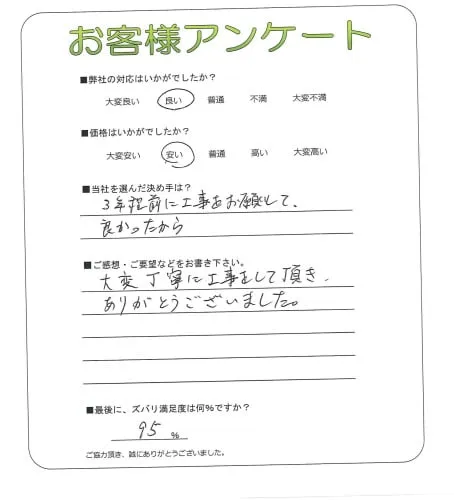 お客様アンケート
■弊社の対応はいかがでしたか？
大変良い 良い 普通 不満 大変不満
■価格はいかがでしたか？
大変安い 安い 普通 高い 大変高い
■当社を選んだ決め手は？
3年程前に工事をお願して、
良かったから
■ご感想・ご要望などをお書き下さい。
大変丁寧に工事をして頂き、
ありがとうございました。
■最後に、ズバリ満足度は何％ですか？
95 ％
ご協力頂き、誠にありがとうございました。